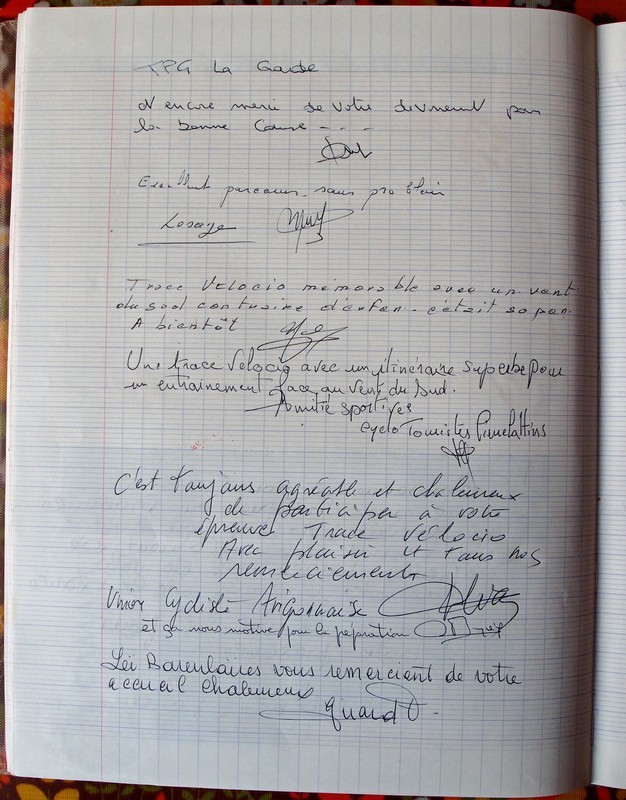 TPG La Garde
et encore merci de votre dévouement pour
la bonne cause - - -
Excellent parcours sans problem
Lesage
Trace Velocio mémorable avec un vent
du sud contraire d'enfer. c'était sopen.
A bientôt
Une trace Velocio avec un itinéraire superbe pour
un entrainement face au vent du sud.
Amitié sportives
Cyclo Touristes Pierrelattins
C'est toujours agréable et chaleureux
de participer à votre
épreuve Trace Vélocio
Avec plaisir et tous nos
remerciements
Union Cycliste Avignonnaise
et ça nous motive pour la préparation
Lei Barulaires vous remercient de votre
accueil chaleureux